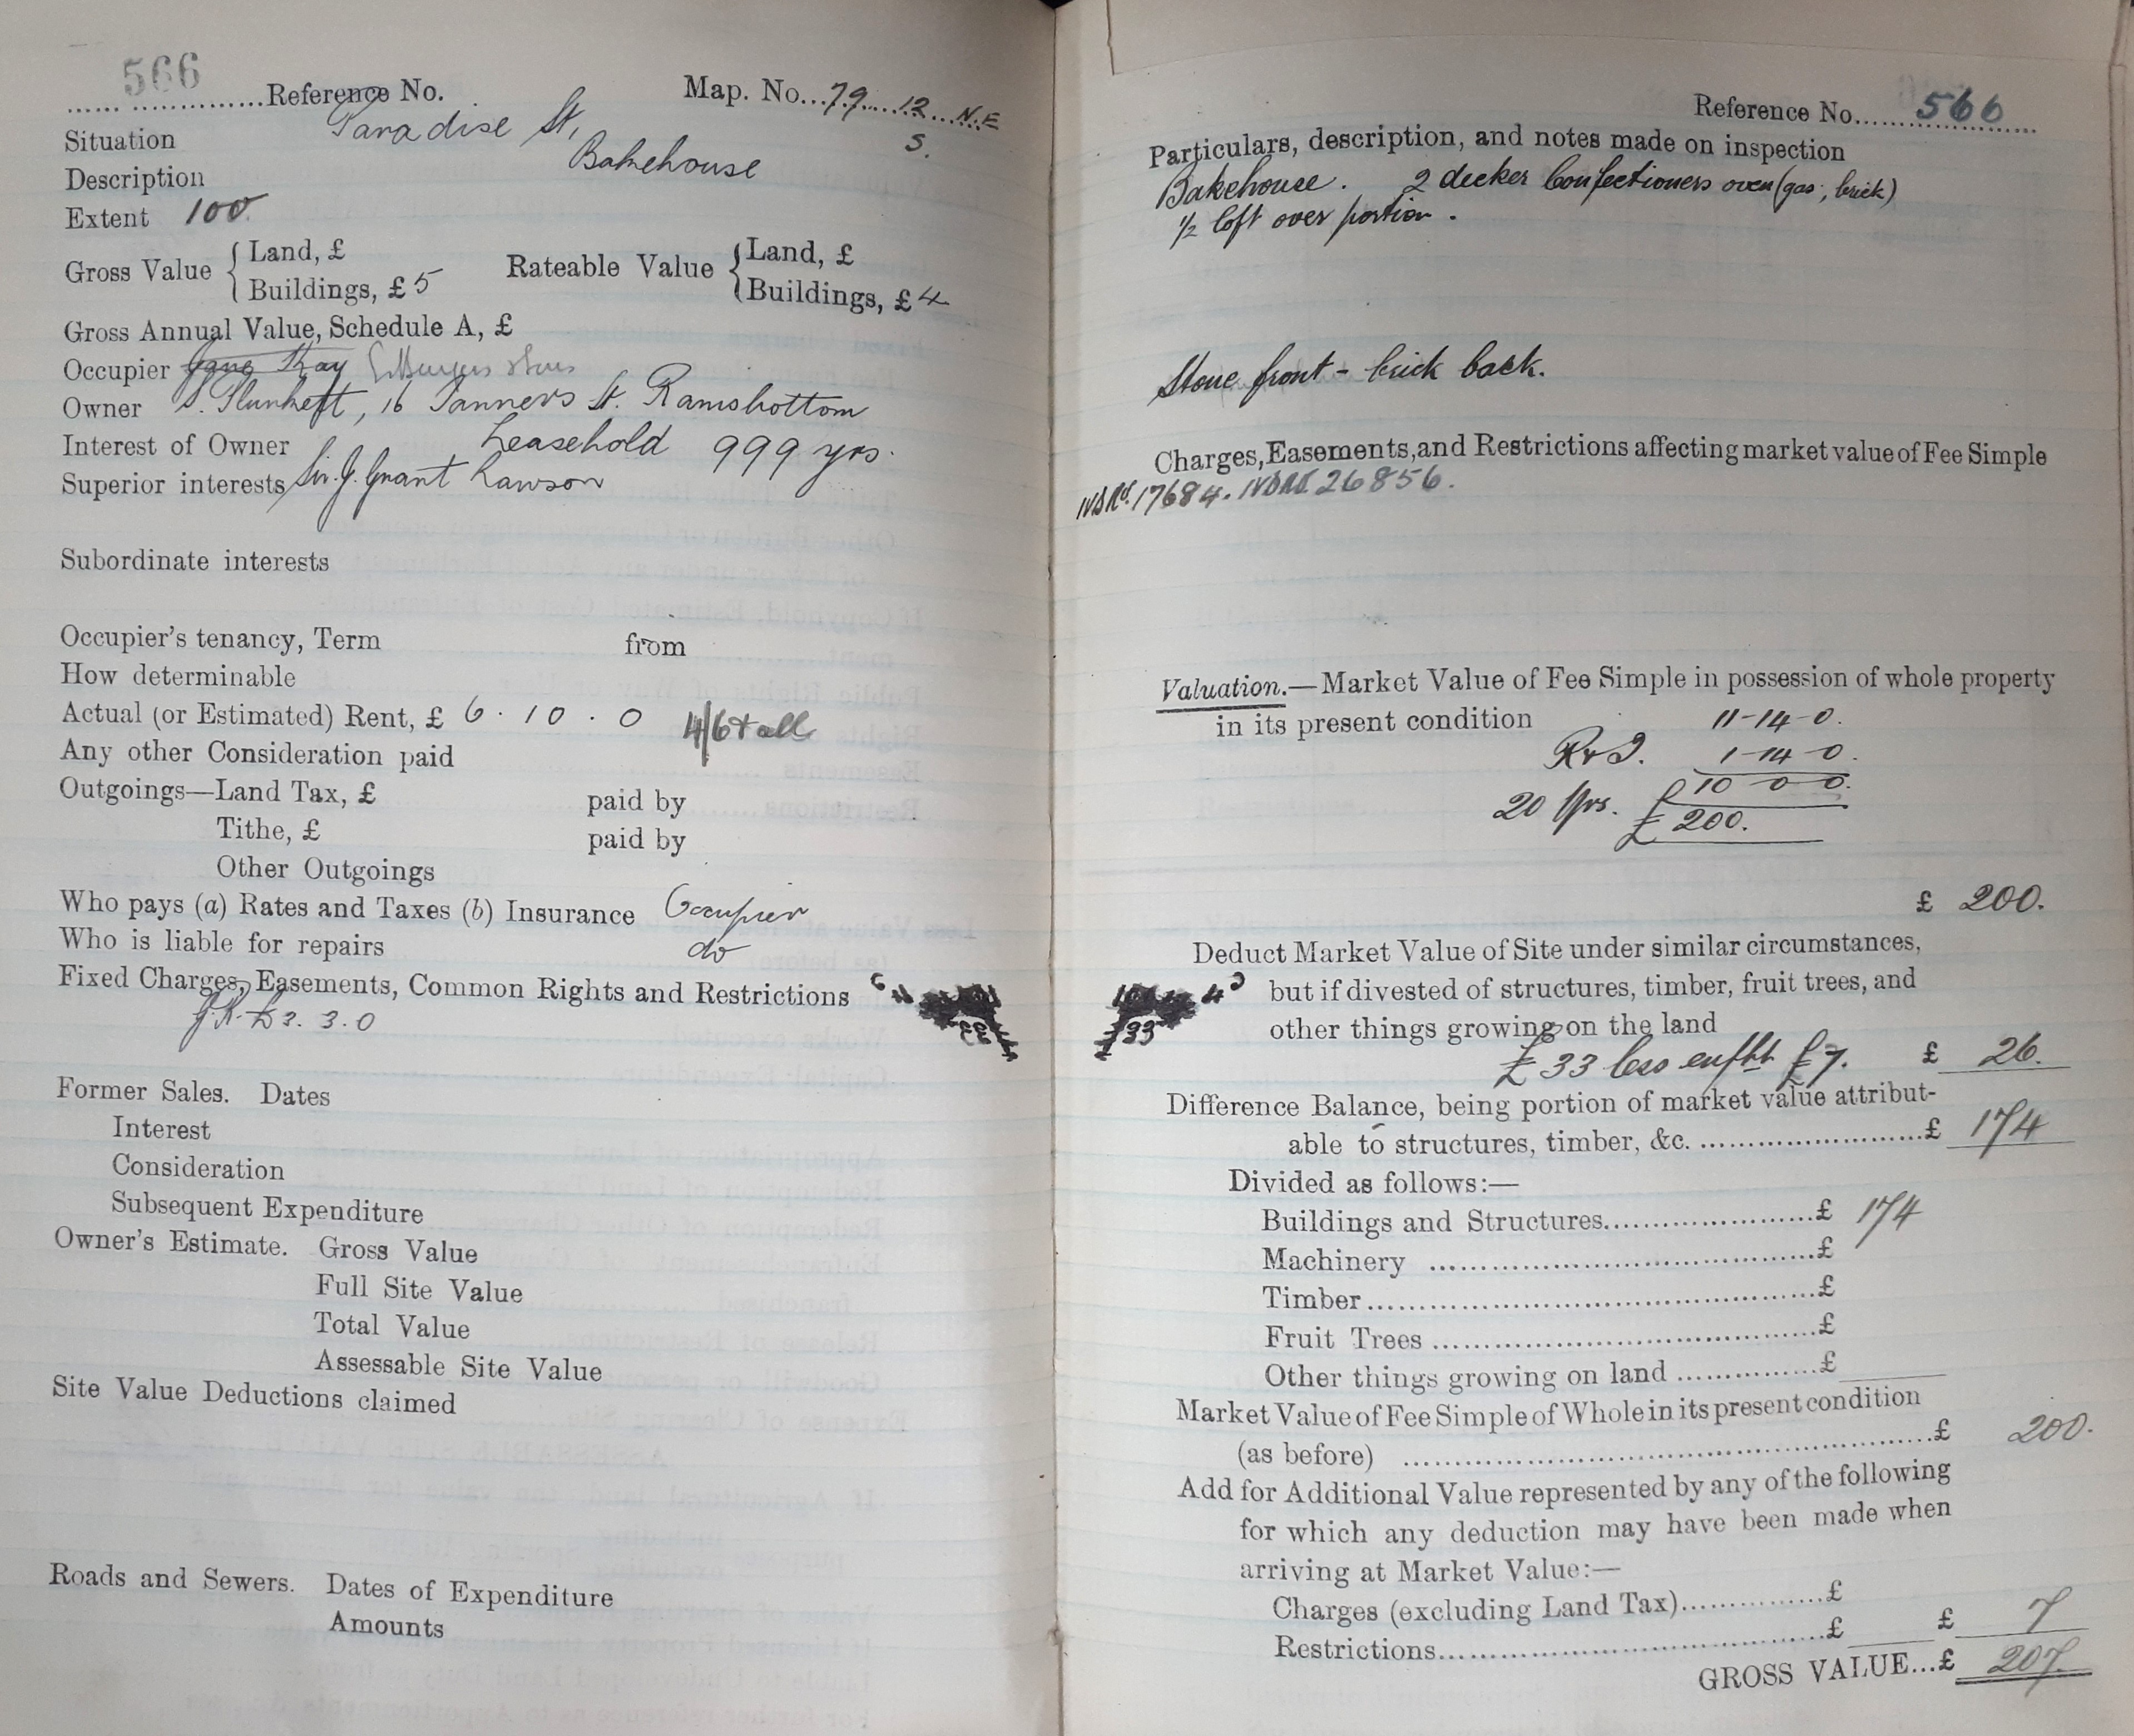 566
Reference No. Map. No. 79 12 N.E
S.
Situation Paradise St,
Description Bakehouse
Extent 100
Gross Value { Land, £ Rateable Value { Land, £
Buildings, £ 5 Buildings, £ 4
Gross Annual Value, Schedule A, £
Occupier Jane Kay
Owner S. Plunkett, 16 Tanners St. Ramsbottom
Interest of Owner Leasehold 999 yrs.
Superior interests Sir J. Grant Lawson
Subordinate interests
Occupier's tenancy, Term from
How determinable
Actual (or Estimated) Rent, £ 6 . 10 . 0 4/6 + all
Any other Consideration paid
Outgoings—Land Tax, £ paid by
Tithe, £ paid by
Other Outgoings
Who pays (a) Rates and Taxes (b) Insurance Occupier
Who is liable for repairs do
Fixed Charges, Easements, Common Rights and Restrictions
3. 3. 0
Former Sales. Dates
Interest
Consideration
Subsequent Expenditure
Owner's Estimate. Gross Value
Full Site Value
Total Value
Assessable Site Value
Site Value Deductions claimed
Roads and Sewers. Dates of Expenditure
Amounts
Reference No. 566
Particulars, description, and notes made on inspection
Bakehouse. 2 decker Confectioners oven (gas, brick)
1/2 loft over portion.
Stone front - brick back.
Charges, Easements, and Restrictions affecting market value of Fee Simple
17684. 26856.
Valuation.—Market Value of Fee Simple in possession of whole property
in its present condition 11-14-0.
R & I. 1-14-0.
£ 10 0 0.
20 Yrs. £ 200.
£ 200.
Deduct Market Value of Site under similar circumstances,
but if divested of structures, timber, fruit trees, and
other things growing on the land
£33 less enfht £7. £ 26.
Difference Balance, being portion of market value attribut-
able to structures, timber, &c. £ 174
Divided as follows:—
Buildings and Structures £ 174
Machinery £
Timber £
Fruit Trees £
Other things growing on land £
Market Value of Fee Simple of Whole in its present condition
(as before) £ 200.
Add for Additional Value represented by any of the following
for which any deduction may have been made when
arriving at Market Value:—
Charges (excluding Land Tax) £
Restrictions £ £ 7
GROSS VALUE...£ 207.